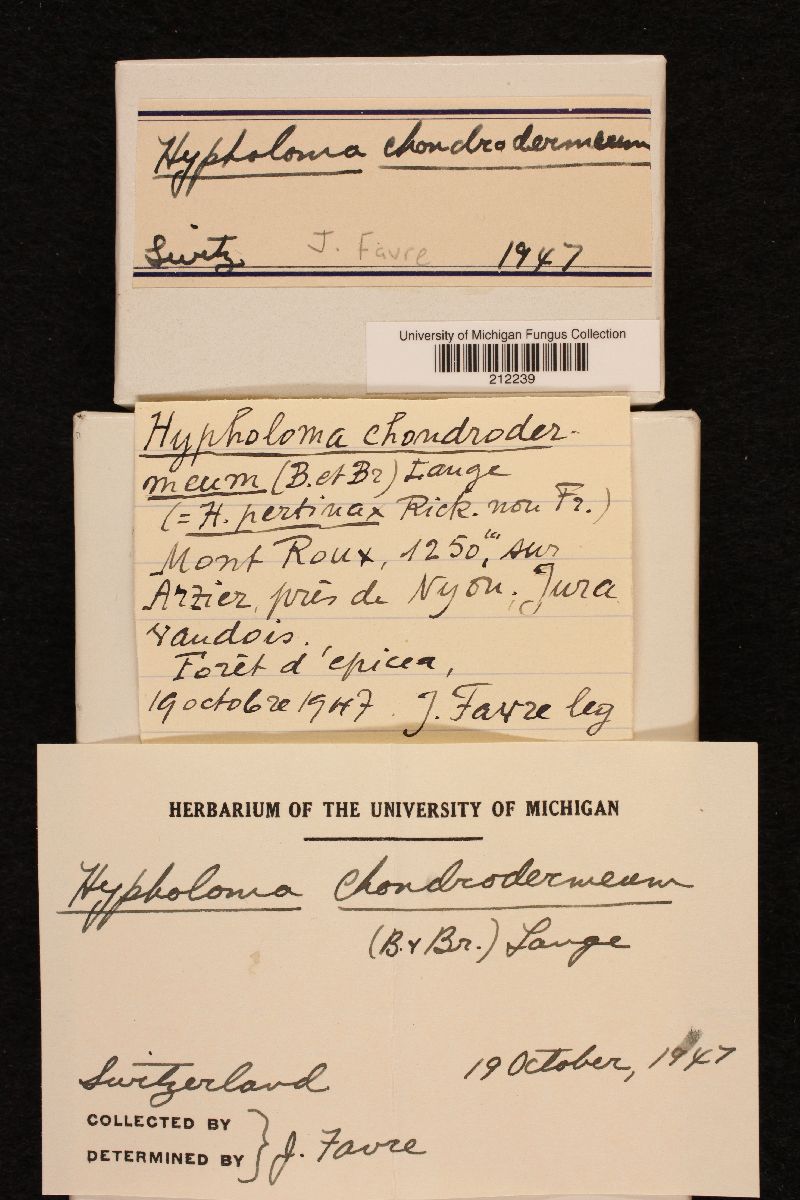 Hypholoma chondrodermeum
Switz. J. Favre 1947
University of Michigan Fungus Collection
212239
Hypholoma chondroder-
meum (B. et Br) Lange
(= H. pertinax Rick. non Fr.)
Mont Roux, 1250m, sur
Arzier, près de Nyon, Jura
vaudois.
Forêt d'épicea,
19 octobre 1947. J. Favre leg
HERBARIUM OF THE UNIVERSITY OF MICHIGAN
Hypholoma chondrodermeum
(B. & Br.) Lange
Switzerland 19 October, 1947
COLLECTED BY
DETERMINED BY } J. Favre